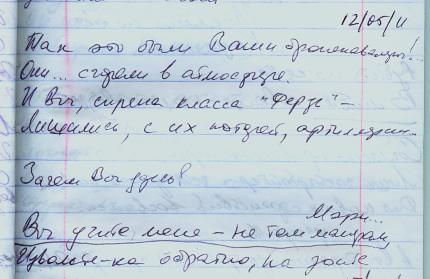 12/05/11
Так это были Ваши броненавты!..
Они... сгорели в атмосфере.
И Вы, сирена класса "Ферзь" -
Лишились, с их потерей, артиллерии...
Зачем Вы здесь?
Мэри...
Вы учите меня - не тем манерам,
Извольте-ка обратно, на